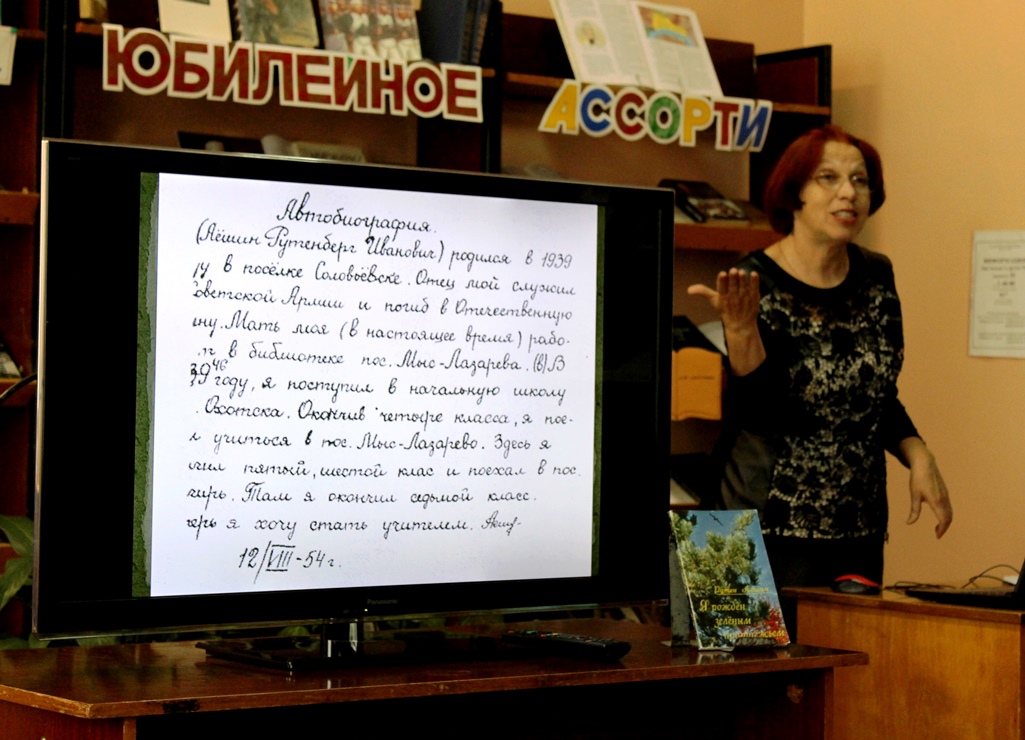 ЮБИЛЕЙНОЕ
АССОРТИ
Автобиография.
(Аёшин Рутенберг Иванович) родился в 1939
ду в посёлке Соловьёвске. Отец мой служил
Советской Армии и погиб в Отечественную
ину. Мать моя (в настоящее время) рабо-
в библиотеке пос. Мыс-Лазарева. (В) В
46
году, я поступил в начальную школу
. Охотска. Окончив четыре класса, я пое-
л учиться в пос. Мыс-Лазарево. Здесь я
чил пятый, шестой клас и поехал в пос.
. Там я окончил седьмой класс.
перь я хочу стать учителем.
12/VIII-54 г.
Panasonic
Я рождён
зелёным